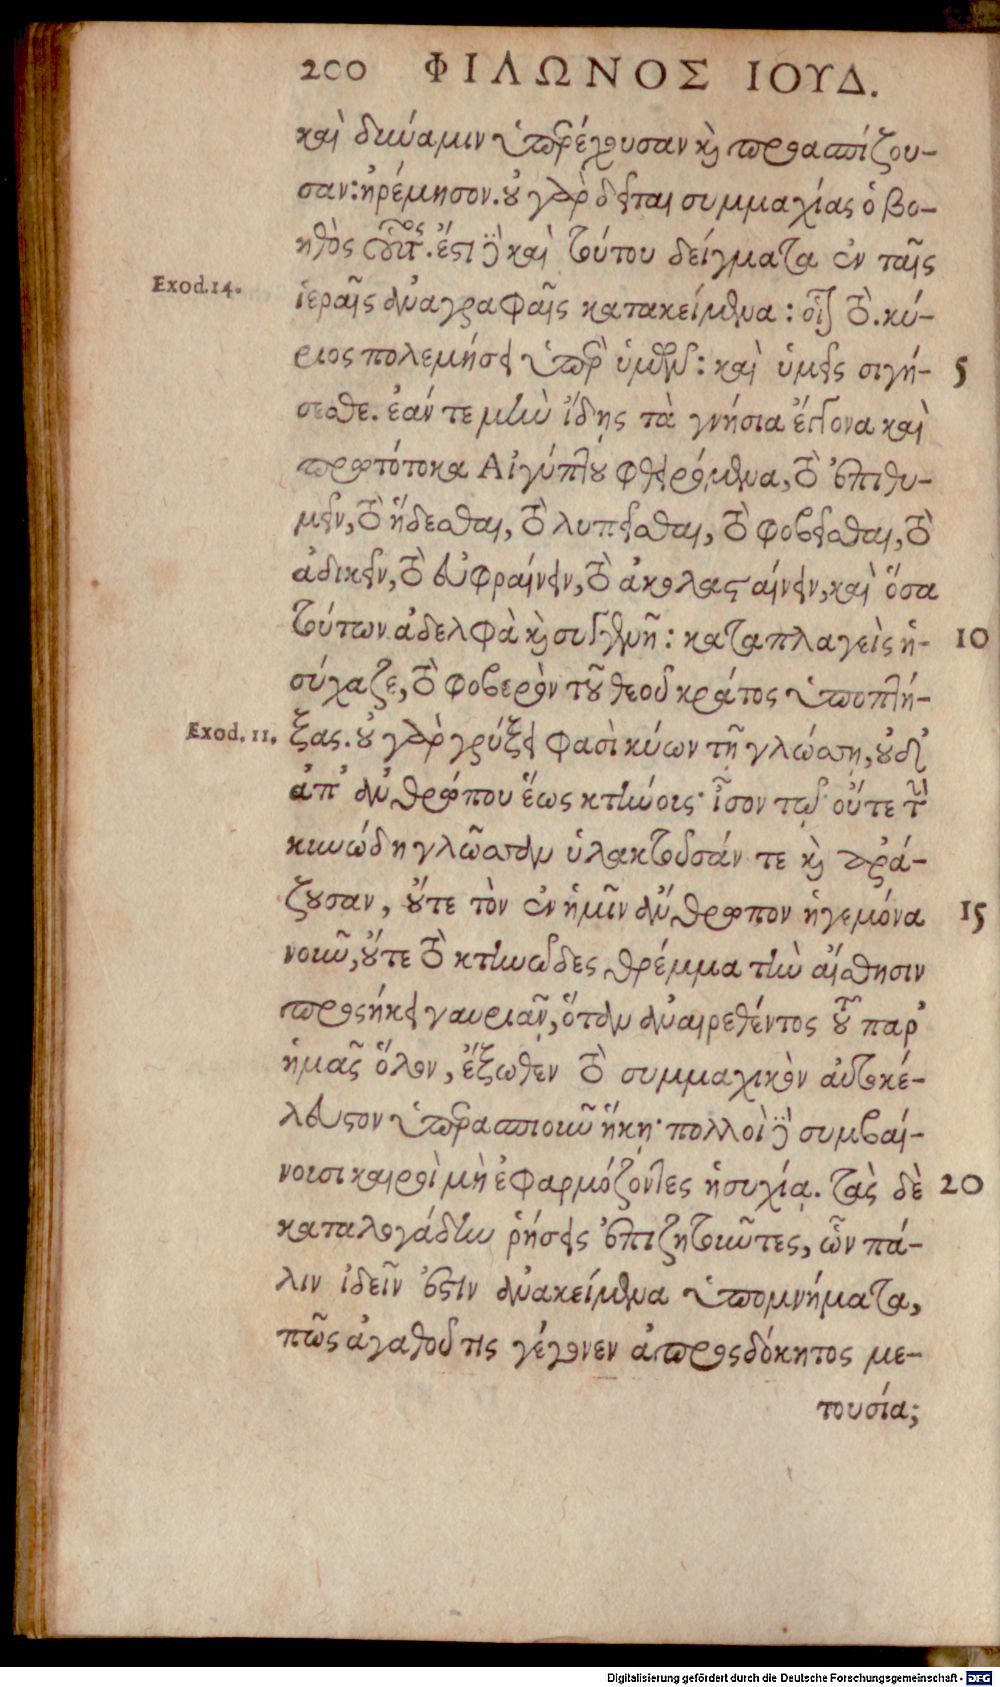 200 ΦΙΛΩΝΟΣ ΙΟΥΔ.
καὶ δύναμιν ὑπερέχουσαν καὶ προασπίζου-
σαν: ἠρέμησον. οὐ γὰρ δεῖται συμμαχίας ὁ βο-
ηθὸς
ἔστι δὲ καὶ τούτου δείγματα ἐν ταῖς
Exod. 14.
ἱεραῖς ἀναγραφαῖς κατακείμενα:
τό. κύ-
ριος πολεμήσει ὑπὲρ ὑμῶν: καὶ ὑμεῖς σιγή- 5
σεσθε. ἐάν τε μὴν ἴδῃς τὰ γνήσια ἔγγονα καὶ
πρωτότοκα Αἰγύπτου φθειρόμενα, τὸ ἐπιθυ-
μεῖν, τὸ ἥδεσθαι, τὸ λυπεῖσθαι, τὸ φοβεῖσθαι, τὸ
ἀδικεῖν, τὸ εὐφραίνειν, τὸ ἀκολασταίνειν, καὶ ὅσα
τούτων ἀδελφὰ καὶ συγγενῆ: καταπλαγεὶς ἡ- 10
σύχαζε, τὸ φοβερὸν τοῦ θεοῦ κράτος ὑποπτή-
Exod. 11.
ξας. οὐ γὰρ γρύξει φασὶ κύων τῇ γλώσσῃ, οὐδ'
ἀπ' ἀνθρώπου ἕως κτήνους· ἴσον τῷ· οὔτε τὴν
κυνώδη γλῶσσαν ὑλακτοῦσάν τε καὶ κρά-
ζουσαν, οὔτε τὸν ἐν ἡμῖν ἄνθρωπον ἡγεμόνα 15
νοῦν, οὔτε τὸ κτηνῶδες θρέμμα τὴν αἴσθησιν
προσήκει γαυριᾶν, ὅταν ἀναιρεθέντος τοῦ παρ'
ἡμᾶς ὅλου, ἔξωθεν τὸ συμμαχικὸν αὐτοκέ-
λευστον ὑπερασπιοῦν ἥκῃ· πολλοὶ δὲ συμβαί-
νουσι καιροὶ μὴ ἐφαρμόζοντες ἡσυχίᾳ. τὰς δὲ 20
καταλογάδην ῥήσεις ἐπιζητοῦντες, ὧν πά-
λιν ἰδεῖν ἐστὶν ἀνακείμενα ὑπομνήματα,
πῶς ἀγαθοῦ τις γέγονεν ἀπροσδόκητος με-
τουσία;
Digitalisierung gefördert durch die Deutsche Forschungsgemeinschaft - DFG